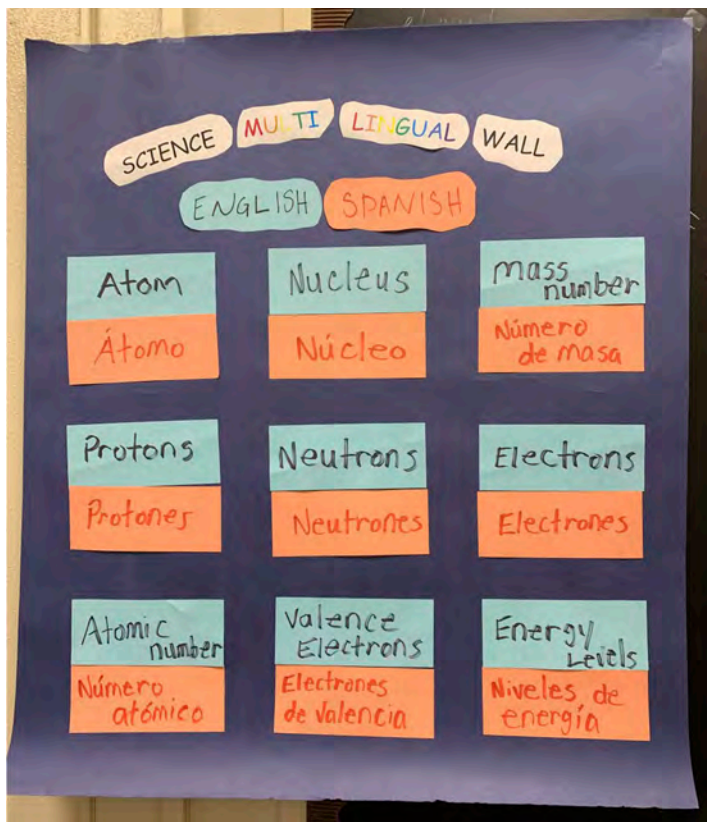 SCIENCE MULTI LINGUAL WALL
ENGLISH SPANISH
Atom
Átomo
Nucleus
Núcleo
Mass
number
Número
de masa
Protons
Protones
Neutrons
Neutrones
Electrons
Electrones
Atomic
number
Número
atómico
Valence
Electrons
Electrones
de valencia
Energy
Levels
Niveles de
energía